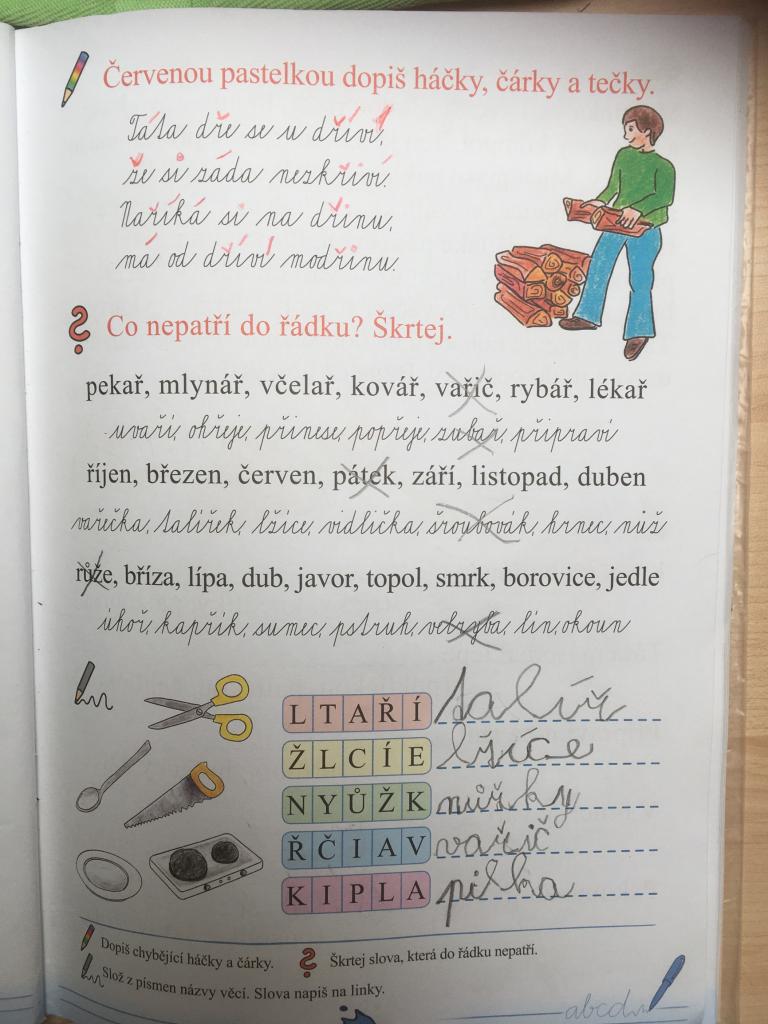 Červenou pastelkou dopiš háčky, čárky a tečky.
Táta dře se u dříví,
že si záda nezkřiví.
Naříká si na dřinu,
má od dříví modřinu.
Co nepatří do řádku? Škrtej.
pekař, mlynář, včelař, kovář, vařič, rybář, lékař
uvaří, ohřeje, přinese, popřeje, zubař, připraví
říjen, březen, červen, pátek, září, listopad, duben
vařečka, talířek, lžíce, vidlička, šroubovák, hrnec, nůž
růže, bříza, lípa, dub, javor, topol, smrk, borovice, jedle
úhoř, kapřík, sumec, pstruh, velryba, lín, okoun
L T A Ř Í talíř
Ž L C Í E lžíce
N Y Ů Ž K nůžky
Ř Č I A V vařič
K I P L A pilka
Dopiš chybějící háčky a čárky. Škrtej slova, která do řádku nepatří.
Slož z písmen názvy věcí. Slova napiš na linky.
abcd